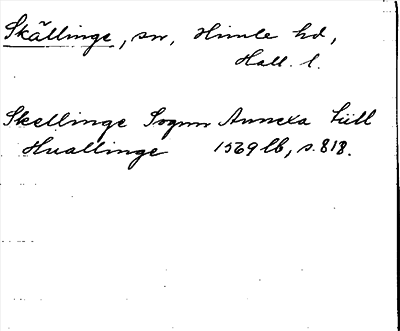 Skällinge, sn, Himle hd,
Hall. l.
Skellinge Sognn Annexa till
Huallinge 1569 lb, s. 818.